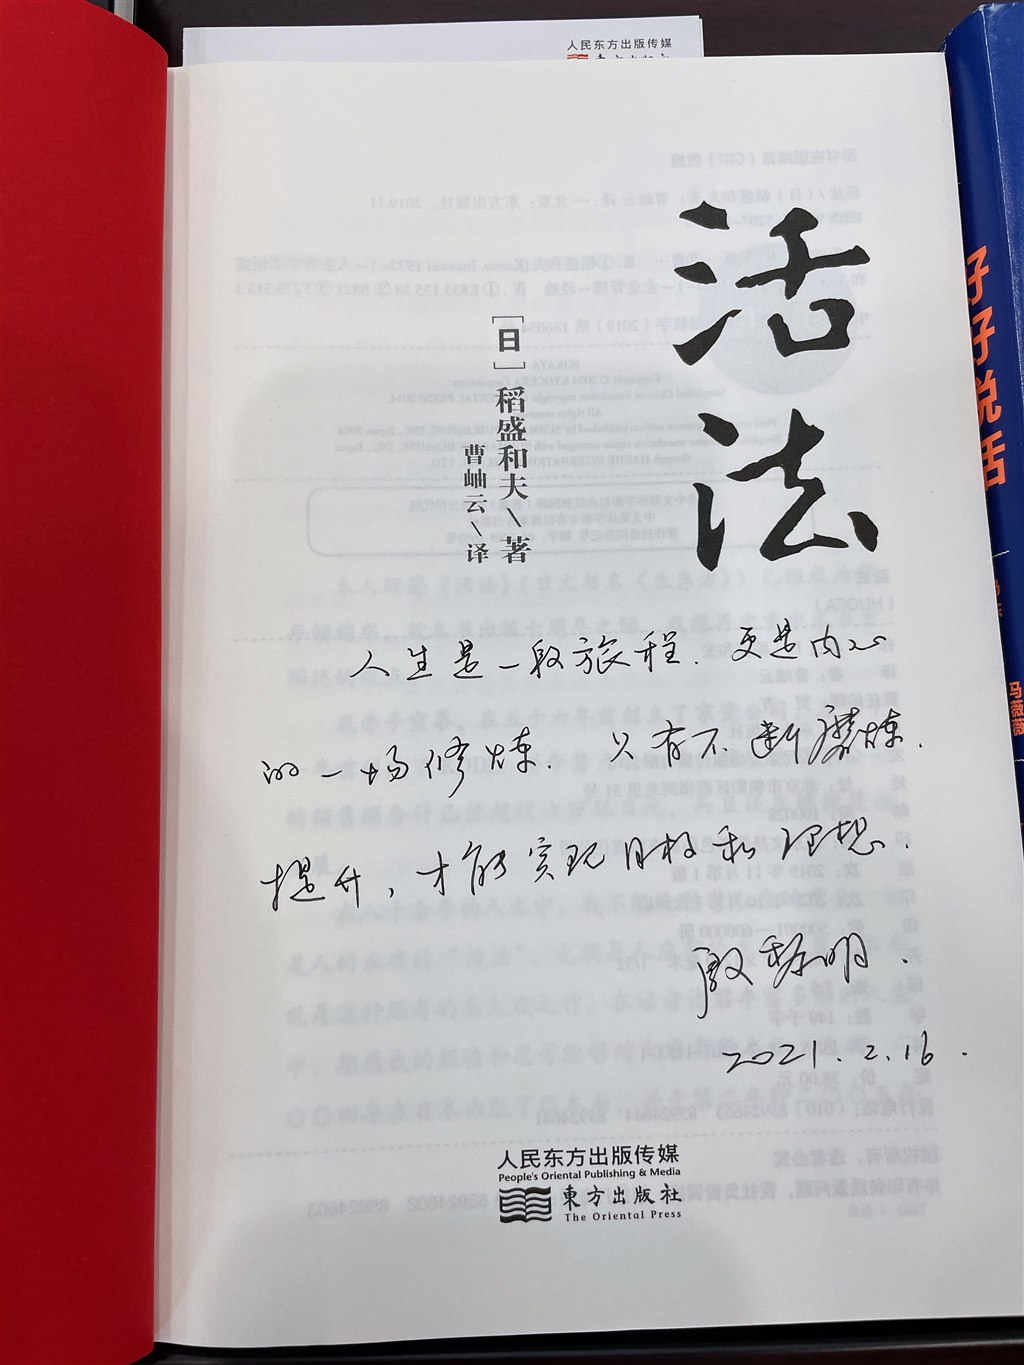 人民东方出版传媒
活法
[日]稻盛和夫\著
曹岫云\译
人生是一段旅程.更是内心
的一场修炼.只有不断磨炼.
提升,才能实现目标和理想.
殷黎明.
2021.2.16.
人民东方出版传媒
People's Oriental Publishing & Media
東方出版社
The Oriental Press
好好说话
马薇薇